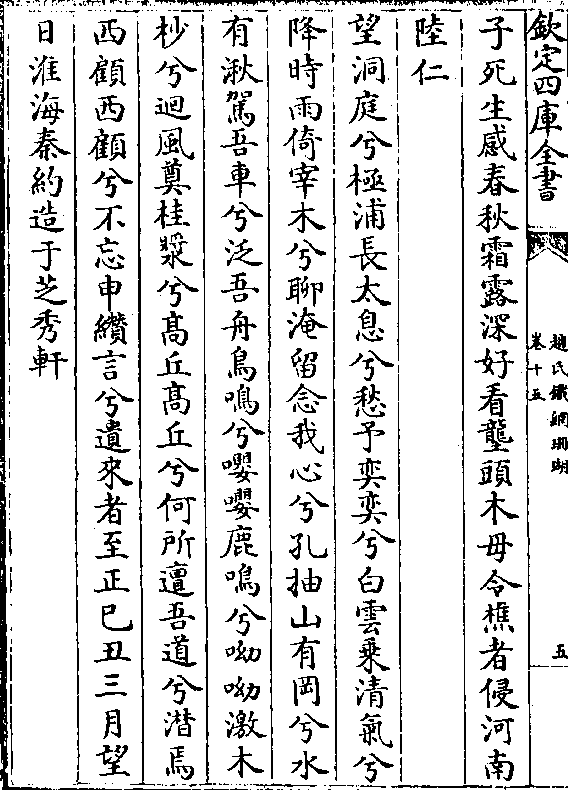 欽定四庫全書
趙氏鐵網珊瑚
卷十五
五
子死生感春秋霜露深好看壟頭木毋令樵者侵河南
陸仁
望洞庭兮極浦長太息兮愁予奕奕兮白雲乗清氣兮
降時雨倚宰木兮聊淹留念我心兮孔抽山有岡兮水
有湫駕吾車兮泛吾舟鳥鳴兮嚶嚶鹿鳴兮呦呦激木
杪兮迴風奠桂漿兮髙丘髙丘兮何所邅吾道兮潜焉
西顧西顧兮不忘申纉言兮遺來者至正己丑三月望
日淮海秦約造于芝秀軒